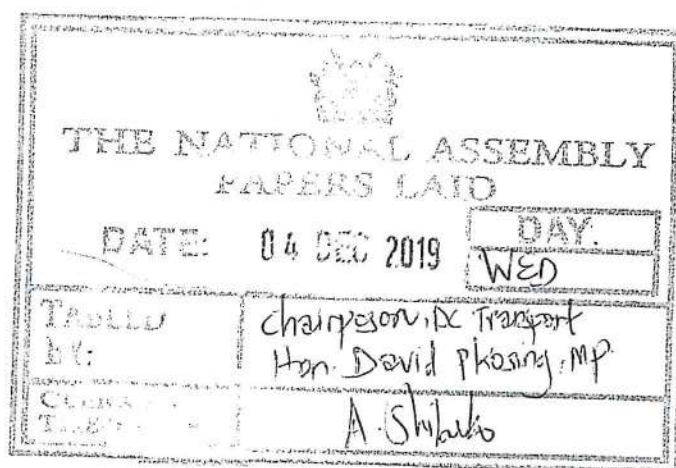 THE NATIONAL ASSEMBLY
PAPERS LAID
DATE: 04 DEC 2019
DAY:
WED
TABLED
BY:
Chairpeson, DC Transport
Hon. David Pkosing, MP
A. Shibuko